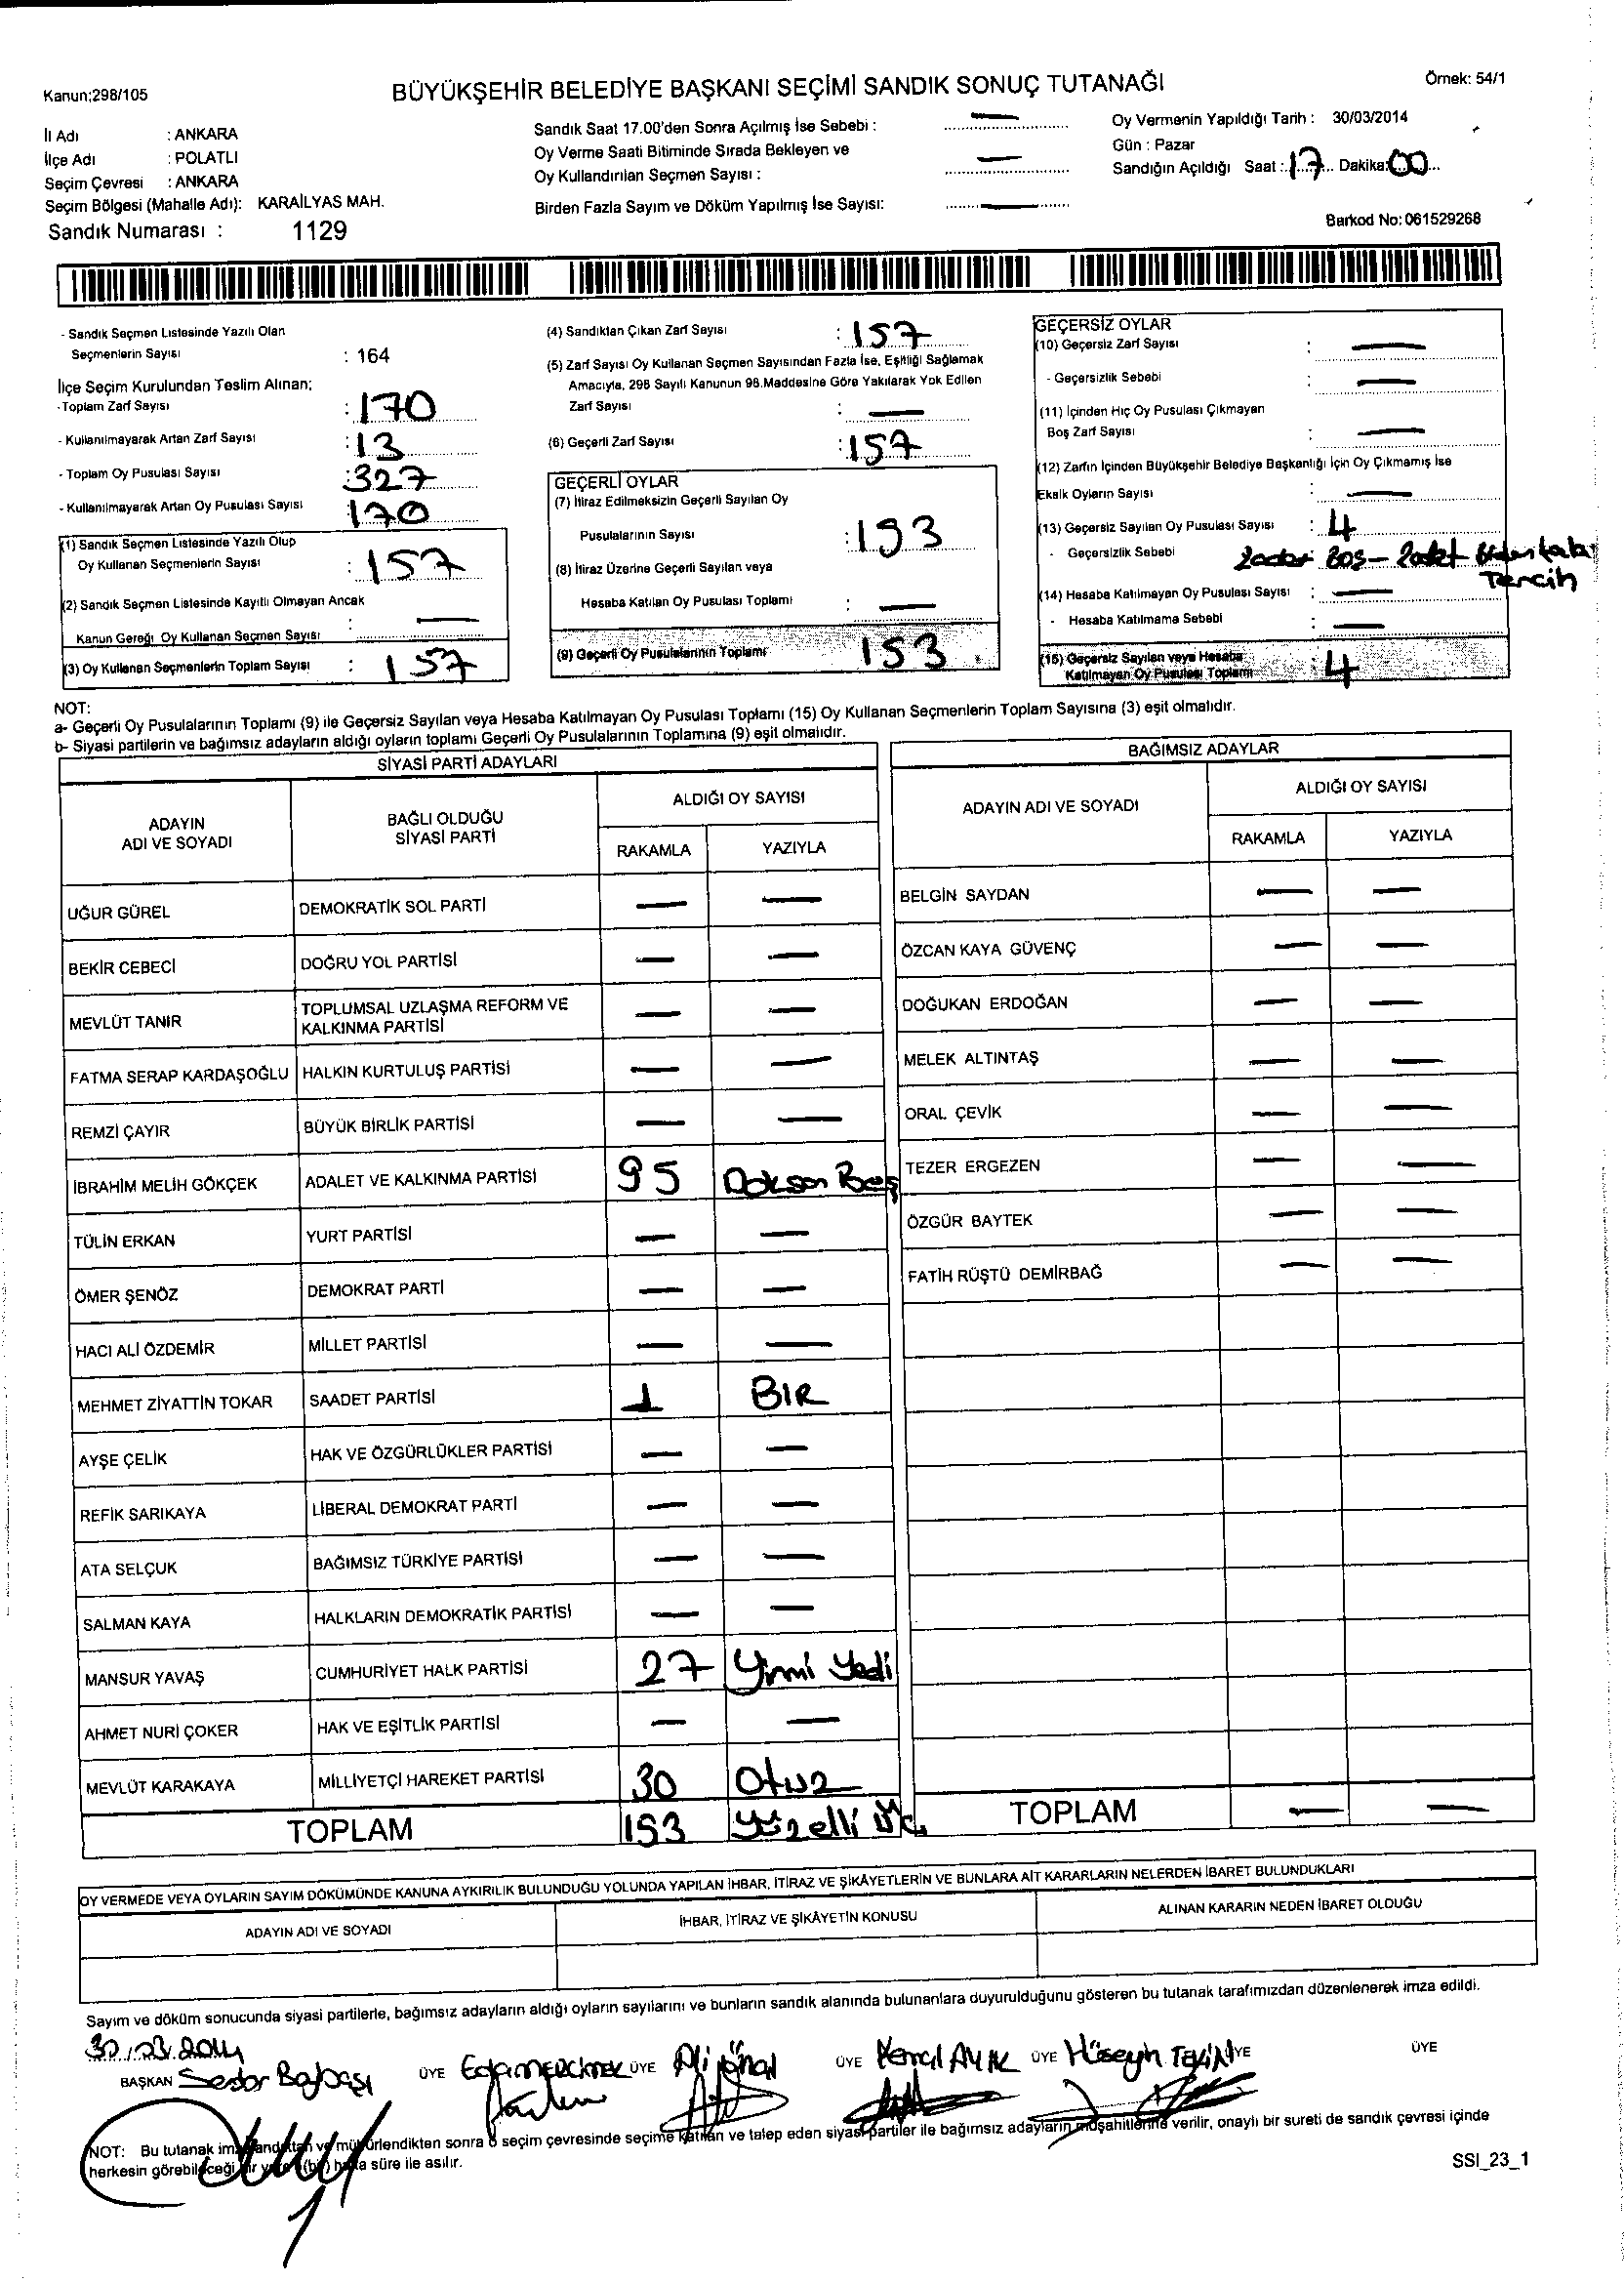 Kanun:298/105
BÜYÜKŞEHİR BELEDİYE BAŞKANI SEÇİMİ SANDIK SONUÇ TUTANAĞI
Örnek: 54/1
İl Adı : ANKARA
İlçe Adı : POLATLI
Seçim Çevresi : ANKARA
Seçim Bölgesi (Mahalle Adı): KARAİLYAS MAH.
Sandık Numarası : 1129
Sandık Saat 17.00'den Sonra Açılmış İse Sebebi : —
Oy Verme Saati Bitiminde Sırada Bekleyen ve
Oy Kullandırılan Seçmen Sayısı : —
Birden Fazla Sayım ve Döküm Yapılmış İse Sayısı: —
Oy Vermenin Yapıldığı Tarih : 30/03/2014
Gün : Pazar
Sandığın Açıldığı Saat : 17 Dakika: 00
Barkod No: 061529268
- Sandık Seçmen Listesinde Yazılı Olan
Seçmenlerin Sayısı : 164
İlçe Seçim Kurulundan Teslim Alınan:
-Toplam Zarf Sayısı : 170
- Kullanılmayarak Artan Zarf Sayısı : 13
- Toplam Oy Pusulası Sayısı : 327
- Kullanılmayarak Artan Oy Pusulası Sayısı 170
(1) Sandık Seçmen Listesinde Yazılı Olup
Oy Kullanan Seçmenlerin Sayısı : 157
(2) Sandık Seçmen Listesinde Kayıtlı Olmayan Ancak
Kanun Gereği Oy Kullanan Seçmen Sayısı : —
(3) Oy Kullanan Seçmenlerin Toplam Sayısı : 157
(4) Sandıktan Çıkan Zarf Sayısı : 157
(5) Zarf Sayısı Oy Kullanan Seçmen Sayısından Fazla İse, Eşitliği Sağlamak
Amacıyla, 298 Sayılı Kanunun 98.Maddesine Göre Yakılarak Yok Edilen
Zarf Sayısı : —
(6) Geçerli Zarf Sayısı : 157
GEÇERLİ OYLAR
(7) İtiraz Edilmeksizin Geçerli Sayılan Oy
Pusulalarının Sayısı : 153
(8) İtiraz Üzerine Geçerli Sayılan veya
Hesaba Katılan Oy Pusulası Toplamı : —
(9) Geçerli Oy Pusulalarının Toplamı 153
GEÇERSİZ OYLAR
(10) Geçersiz Zarf Sayısı : —
- Geçersizlik Sebebi : —
(11) İçinden Hiç Oy Pusulası Çıkmayan
Boş Zarf Sayısı : —
(12) Zarfın İçinden Büyükşehir Belediye Başkanlığı İçin Oy Çıkmamış İse
Eksik Oyların Sayısı : —
(13) Geçersiz Sayılan Oy Pusulası Sayısı : 4
- Geçersizlik Sebebi 2 adet BOŞ – 2 adet Birden fazla
Tercih
(14) Hesaba Katılmayan Oy Pusulası Sayısı : —
- Hesaba Katılmama Sebebi : —
(15) Geçersiz Sayılan veya Hesaba
Katılmayan Oy Pusulası Toplamı : 4
NOT:
a- Geçerli Oy Pusulalarının Toplamı (9) ile Geçersiz Sayılan veya Hesaba Katılmayan Oy Pusulası Toplamı (15) Oy Kullanan Seçmenlerin Toplam Sayısına (3) eşit olmalıdır.
b- Siyasi partilerin ve bağımsız adayların aldığı oyların toplamı Geçerli Oy Pusulalarının Toplamına (9) eşit olmalıdır.
SİYASİ PARTİ ADAYLARI
ADAYIN
ADI VE SOYADI
BAĞLI OLDUĞU
SİYASİ PARTİ
ALDIĞI OY SAYISI
RAKAMLA YAZIYLA
UĞUR GÜREL DEMOKRATİK SOL PARTİ — —
BEKİR CEBECİ DOĞRU YOL PARTİSİ — —
MEVLÜT TANIR TOPLUMSAL UZLAŞMA REFORM VE
KALKINMA PARTİSİ — —
FATMA SERAP KARDAŞOĞLU HALKIN KURTULUŞ PARTİSİ — —
REMZİ ÇAYIR BÜYÜK BİRLİK PARTİSİ — —
İBRAHİM MELİH GÖKÇEK ADALET VE KALKINMA PARTİSİ 95 Doksan Beş
TÜLİN ERKAN YURT PARTİSİ — —
ÖMER ŞENÖZ DEMOKRAT PARTİ — —
HACI ALİ ÖZDEMİR MİLLET PARTİSİ — —
MEHMET ZİYATTİN TOKAR SAADET PARTİSİ 1 BIR
AYŞE ÇELİK HAK VE ÖZGÜRLÜKLER PARTİSİ — —
REFİK SARIKAYA LİBERAL DEMOKRAT PARTİ — —
ATA SELÇUK BAĞIMSIZ TÜRKİYE PARTİSİ — —
SALMAN KAYA HALKLARIN DEMOKRATİK PARTİSİ — —
MANSUR YAVAŞ CUMHURİYET HALK PARTİSİ 27 Yirmi Yedi
AHMET NURİ ÇOKER HAK VE EŞİTLİK PARTİSİ — —
MEVLÜT KARAKAYA MİLLİYETÇİ HAREKET PARTİSİ 30 Otuz
TOPLAM 153 Yüzelli üç
BAĞIMSIZ ADAYLAR
ADAYIN ADI VE SOYADI
ALDIĞI OY SAYISI
RAKAMLA YAZIYLA
BELGİN SAYDAN — —
ÖZCAN KAYA GÜVENÇ — —
DOĞUKAN ERDOĞAN — —
MELEK ALTINTAŞ — —
ORAL ÇEVİK — —
TEZER ERGEZEN — —
ÖZGÜR BAYTEK — —
FATİH RÜŞTÜ DEMİRBAĞ — —
TOPLAM — —
OY VERMEDE VEYA OYLARIN SAYIM DÖKÜMÜNDE KANUNA AYKIRILIK BULUNDUĞU YOLUNDA YAPILAN İHBAR, İTİRAZ VE ŞİKÂYETLERİN VE BUNLARA AİT KARARLARIN NELERDEN İBARET BULUNDUKLARI
ADAYIN ADI VE SOYADI İHBAR, İTİRAZ VE ŞİKÂYETİN KONUSU ALINAN KARARIN NEDEN İBARET OLDUĞU
Sayım ve döküm sonucunda siyasi partilerle, bağımsız adayların aldığı oyların sayılarını ve bunların sandık alanında bulunanlara duyurulduğunu gösteren bu tutanak tarafımızdan düzenlenerek imza edildi.
30.03.2014
BAŞKAN ÜYE ÜYE Ali ÜYE Kemal ÜYE Hüseyin TEKİN ÜYE ÜYE
NOT: Bu tutanak imzalandıktan ve mühürlendikten sonra o seçim çevresinde seçime katılan ve talep eden siyasi partiler ile bağımsız adayların müşahitlerine verilir, onaylı bir sureti de sandık çevresi içinde
herkesin görebileceği bir yere (bir) hafta süre ile asılır.
SSI_23_1